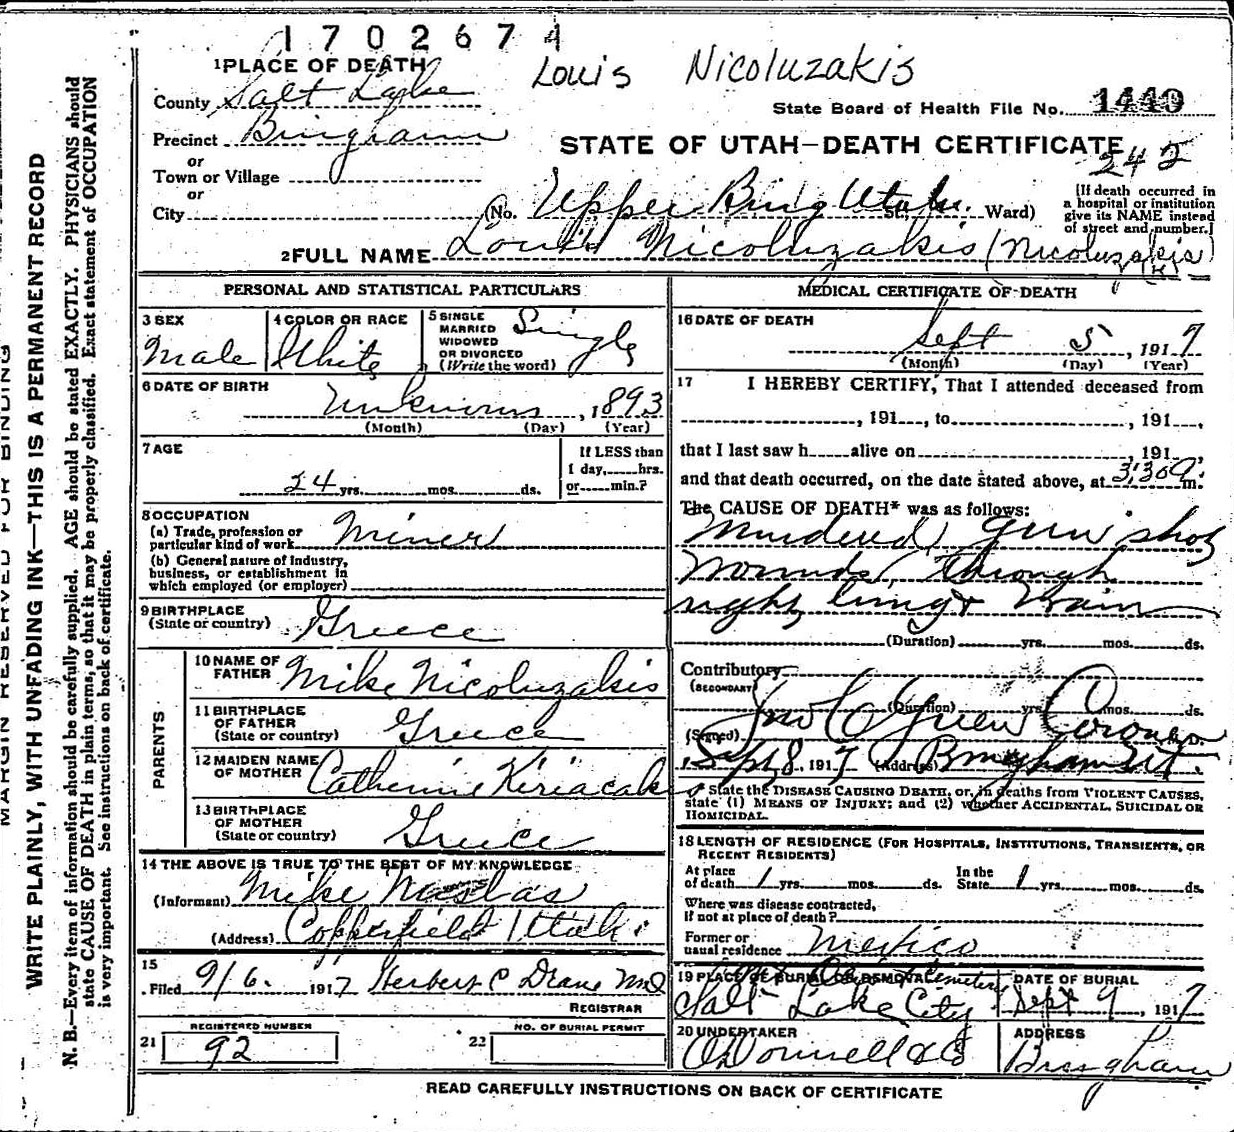 1702674
Louis Nicoluzakis
1 PLACE OF DEATH
County Salt Lake
State Board of Health File No. 1440
Precinct Bingham
STATE OF UTAH—DEATH CERTIFICATE
242
or
Town or Village
or
City
(No. Upper Bing Utah. St., Ward)
[If death occurred in
a hospital or institution
give its NAME instead
of street and number.]
2 FULL NAME Louis Nicoluzakis (Nicoluzakis)
PERSONAL AND STATISTICAL PARTICULARS
3 SEX
Male
4 COLOR OR RACE
White
5 SINGLE
MARRIED
WIDOWED
OR DIVORCED
(Write the word)
Single
6 DATE OF BIRTH
Unknown, 1893
(Month) (Day) (Year)
7 AGE
24 yrs. mos. ds.
If LESS than
1 day, hrs.
or min.?
8 OCCUPATION
(a) Trade, profession or
particular kind of work Miner
(b) General nature of industry,
business, or establishment in
which employed (or employer)
9 BIRTHPLACE
(State or country) Greece
PARENTS
10 NAME OF
FATHER Mike Nicoluzakis
11 BIRTHPLACE
OF FATHER
(State or country) Greece
12 MAIDEN NAME
OF MOTHER Catherine Keriacakis
13 BIRTHPLACE
OF MOTHER
(State or country) Greece
14 THE ABOVE IS TRUE TO THE BEST OF MY KNOWLEDGE
(Informant) Mike
(Address) Copperfield Utah
15
Filed 9/6. 1917 Herbert C
REGISTRAR
REGISTERED NUMBER
21 92
NO. OF BURIAL PERMIT
22
MEDICAL CERTIFICATE OF DEATH
16 DATE OF DEATH
Sept 5, 1917
(Month) (Day) (Year)
17 I HEREBY CERTIFY, That I attended deceased from
, 191 , to , 191 ,
that I last saw h alive on , 191 ,
and that death occurred, on the date stated above, at 3:30 m.
The CAUSE OF DEATH* was as follows:
Murdered gun shot
wounds, through
right lung & brain
(Duration) yrs. mos. ds.
Contributory
(SECONDARY)
(Duration) yrs. mos. ds.
(Signed) Jno C Green Coroner
Sept 8, 1917 (Address) Bingham Ut.
* State the DISEASE CAUSING DEATH, or, in deaths from VIOLENT CAUSES,
state (1) MEANS OF INJURY; and (2) whether ACCIDENTAL, SUICIDAL OR
HOMICIDAL.
18 LENGTH OF RESIDENCE (FOR HOSPITALS, INSTITUTIONS, TRANSIENTS, OR
RECENT RESIDENTS)
At place
of death 1 yrs. mos. ds.
In the
State 1 yrs. mos. ds.
Where was disease contracted,
if not at place of death?
Former or
usual residence Mexico
19 PLACE OF BURIAL OR REMOVAL
Cemetery
Salt Lake City
DATE OF BURIAL
Sept 9, 1917
20 UNDERTAKER
O'Donnell & Co
ADDRESS
Bingham
READ CAREFULLY INSTRUCTIONS ON BACK OF CERTIFICATE
MARGIN RESERVED FOR BINDING
WRITE PLAINLY, WITH UNFADING INK—THIS IS A PERMANENT RECORD
N. B.—Every item of information should be carefully supplied. AGE should be stated EXACTLY. PHYSICIANS should
state CAUSE OF DEATH in plain terms, so that it may be properly classified. Exact statement of OCCUPATION
is very important. See instructions on back of certificate.